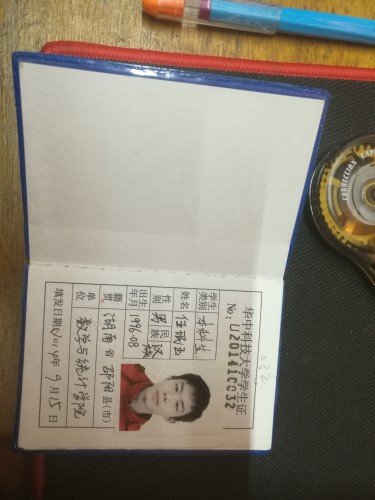 华中科技大学学生证
No: U201410032
学生类别 本科生
姓名 任珮玉
性别 男 民族 汉族
出生年月 1996.08
籍贯 湖南省 邵阳 县(市)
单位 数学与统计学院
填发日期 2014年 9月 15日
032
CORRECTION